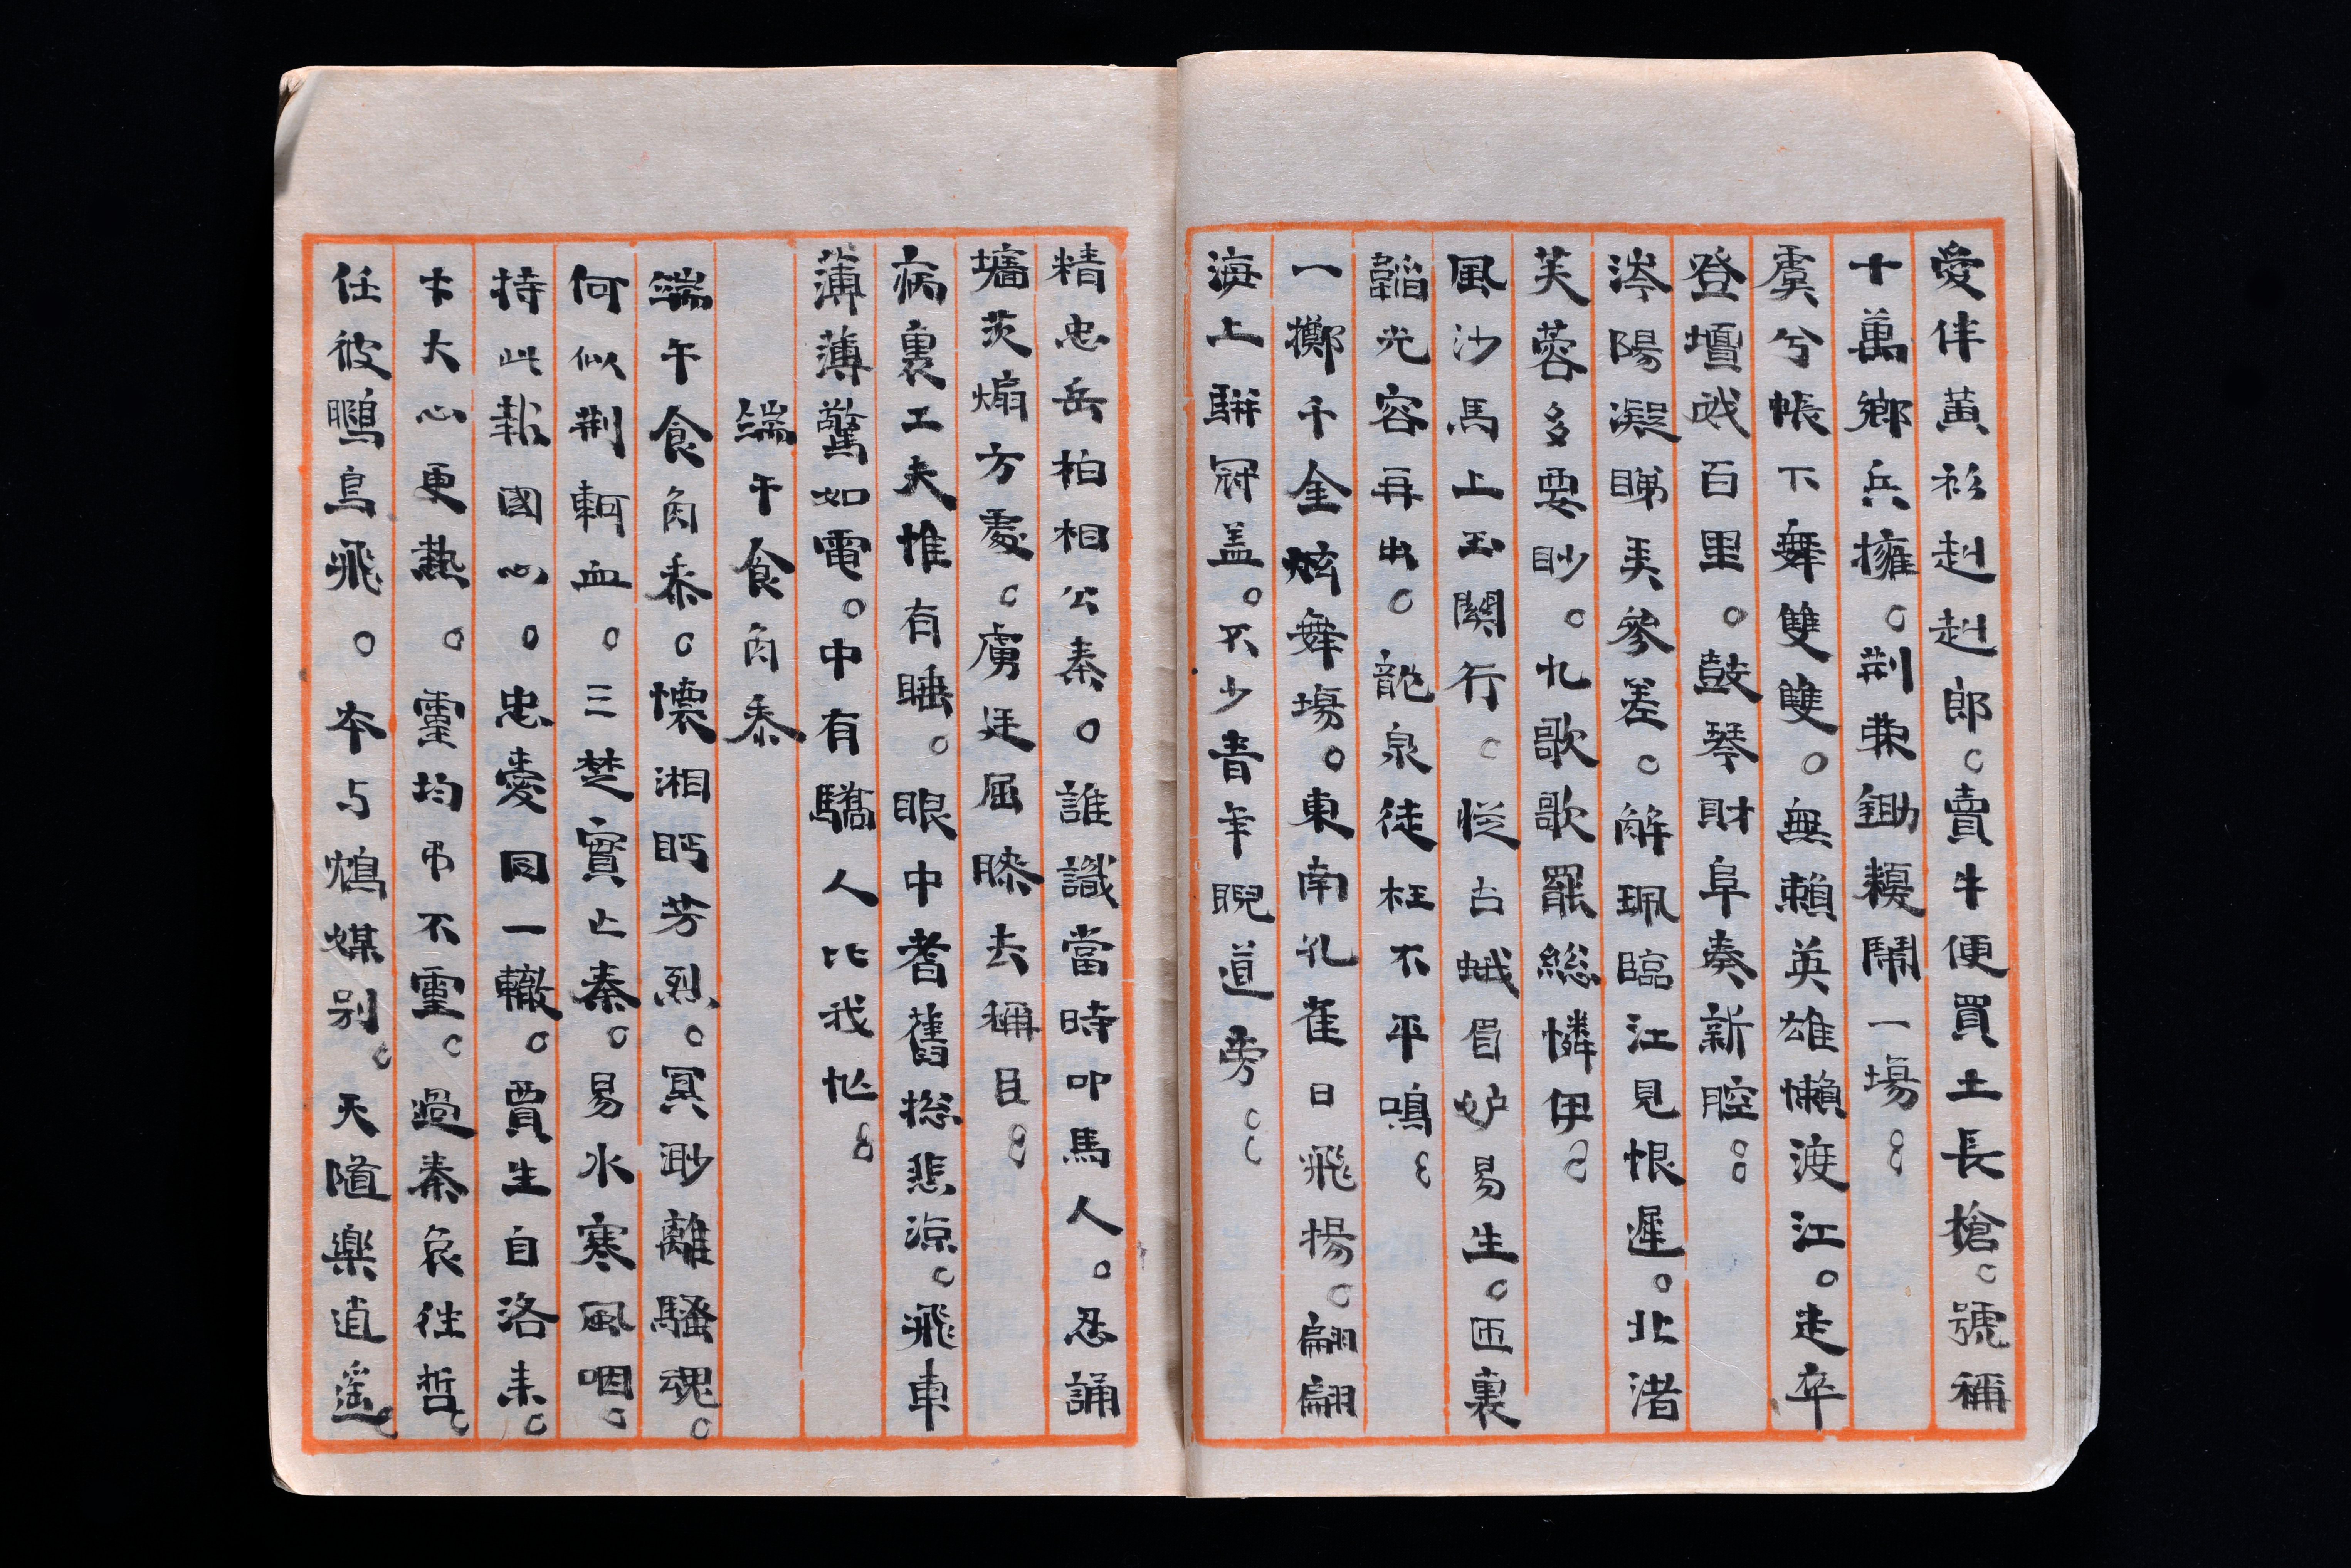 愛伴黃衫赳赳郎。賣牛便買土長槍。號稱
十萬鄉兵擁。荆棘鋤耰鬧一場
虞兮帳下舞雙雙。無賴英雄懶渡江。走卒
登壇戲百里。鼓琴財阜奏新腔
涔陽凝睇美參差。解珮臨江見恨遲。北渚
芙蓉多要眇。九歌歌罷總憐伊
風沙馬上玉關行。從古蛾眉妒易生。匣裏
韜光容再出。龍泉徒枉不平鳴
一擲千金炫舞場。東南孔雀日飛揚。翩翩
海上駢冠盖。不少青年睨道旁
精忠岳柏相公秦。誰識當時叩馬人。忍誦
墻茨煽方處。虜廷屈膝去稱臣
病裏工夫惟有睡。眼中耆舊揔悲涼。飛車
薄薄驚如電。中有驕人比我忙
端午食角黍
端午食角黍。懷湘眄芳烈。冥渺離騷魂。
何似荆軻血。三楚實亡秦。易水寒風咽。
持此報國心。忠愛同一轍。賈生自洛来。
才大心更熱。靈均弔不靈。過秦哀往哲。
任彼鵬鳥飛。本与鴆媒别。天隨樂逍遥。